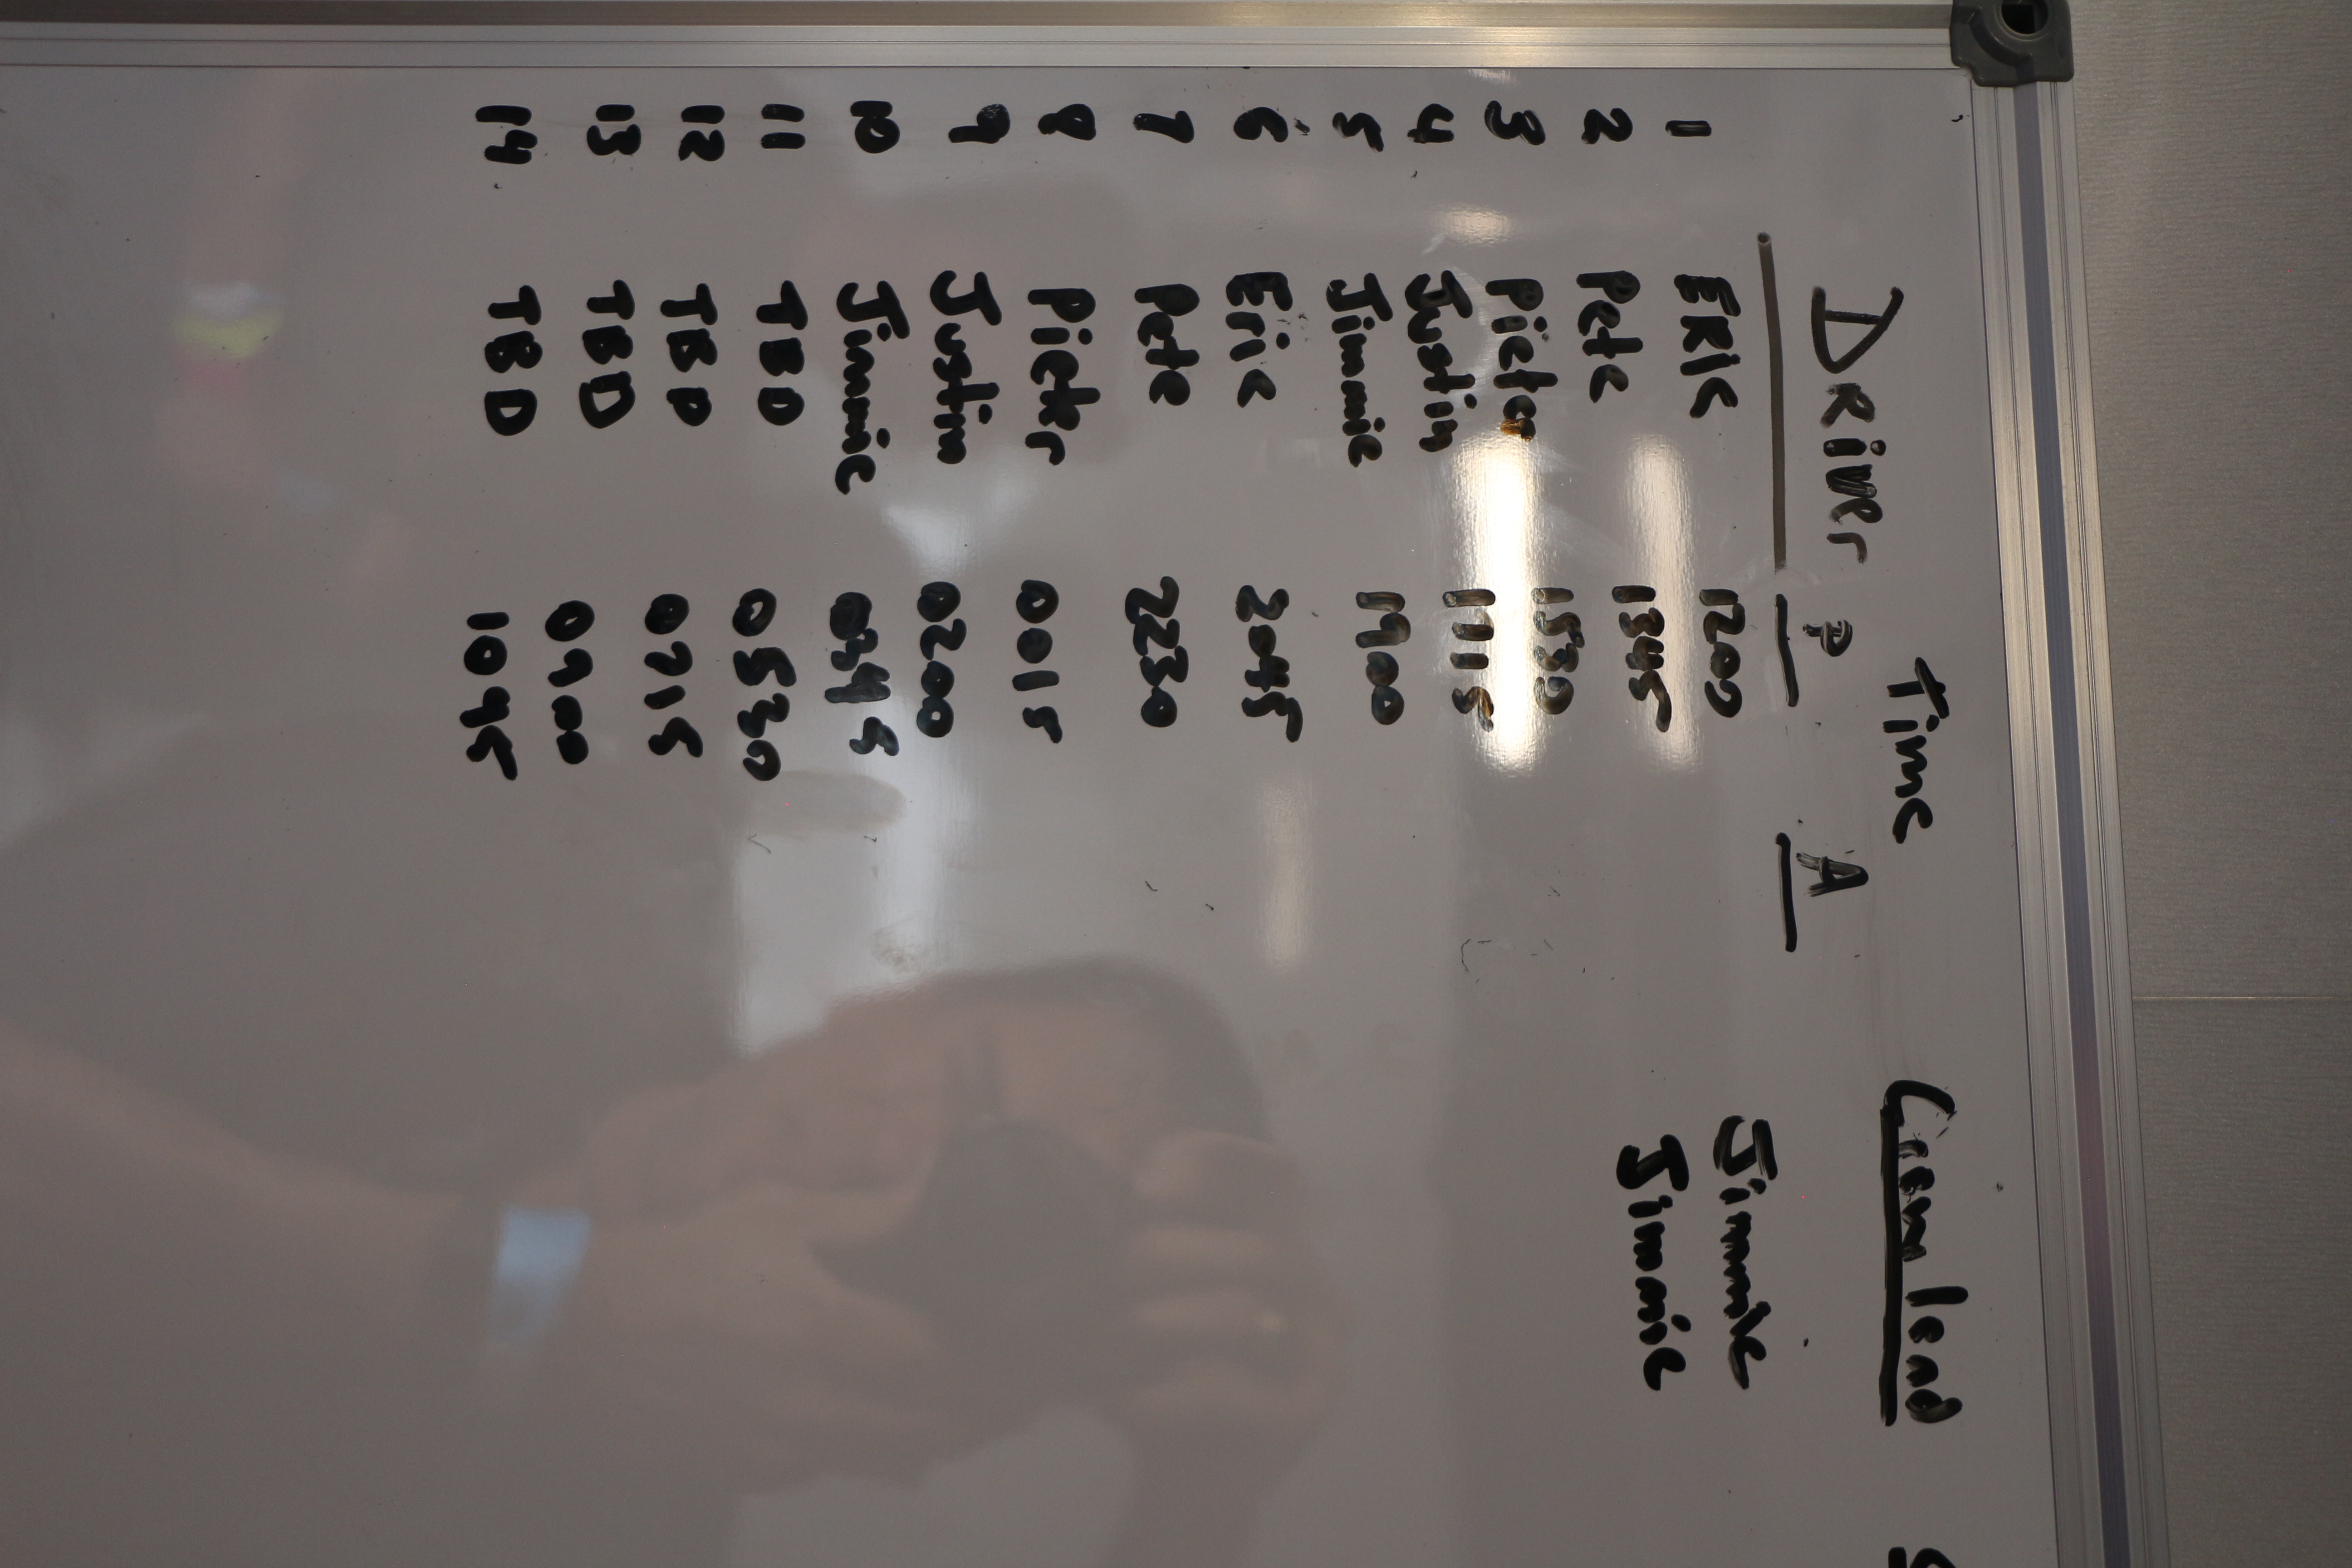 Time lead
DRiver P A
1 ERIC 1200 Jimmie
2 Pete 1345 Jimmie
3 Pieter 1530
4 Justin 1715
5 Jimmie 1900
6 Eric 2045
7 Pete 2230
8 Pieter 0015
9 Justin 0200
10 Jimmie 0345
11 TBD 0530
12 TBD 0715
13 TBD 0900
14 TBD 1045